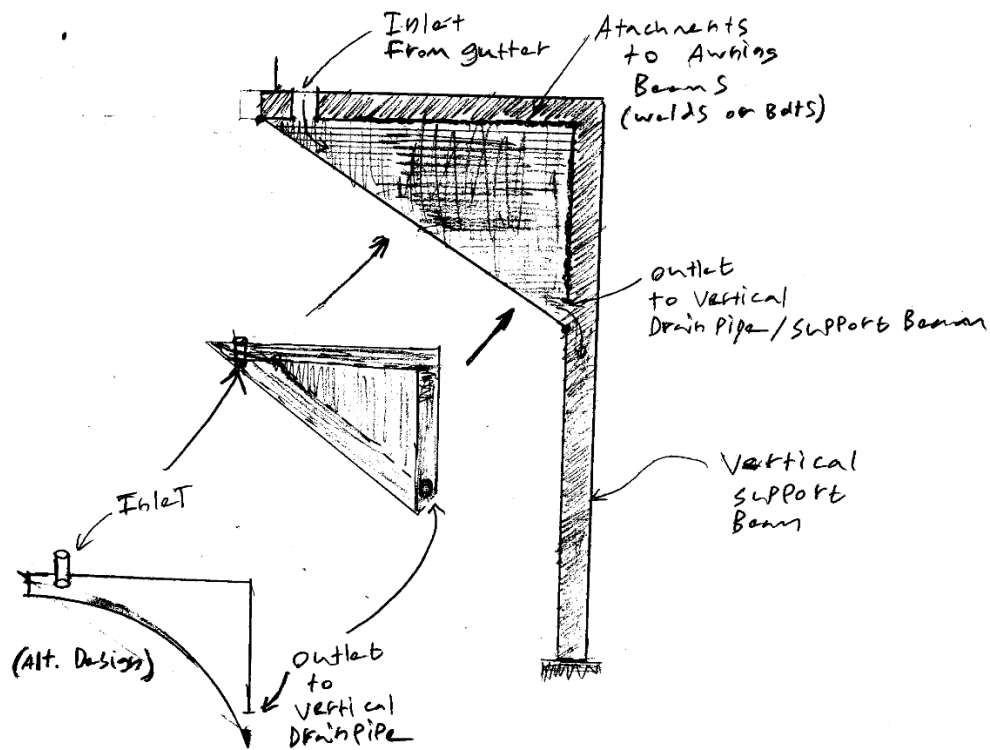 Inlet
From gutter
Atachments
to Awning
Beams
(welds or Bolts)
outlet
to vertical
Drain pipe/support Beam
Vertical
support
Beam
InleT
(Alt. Design)
outlet
to
vertical
Drainpipe